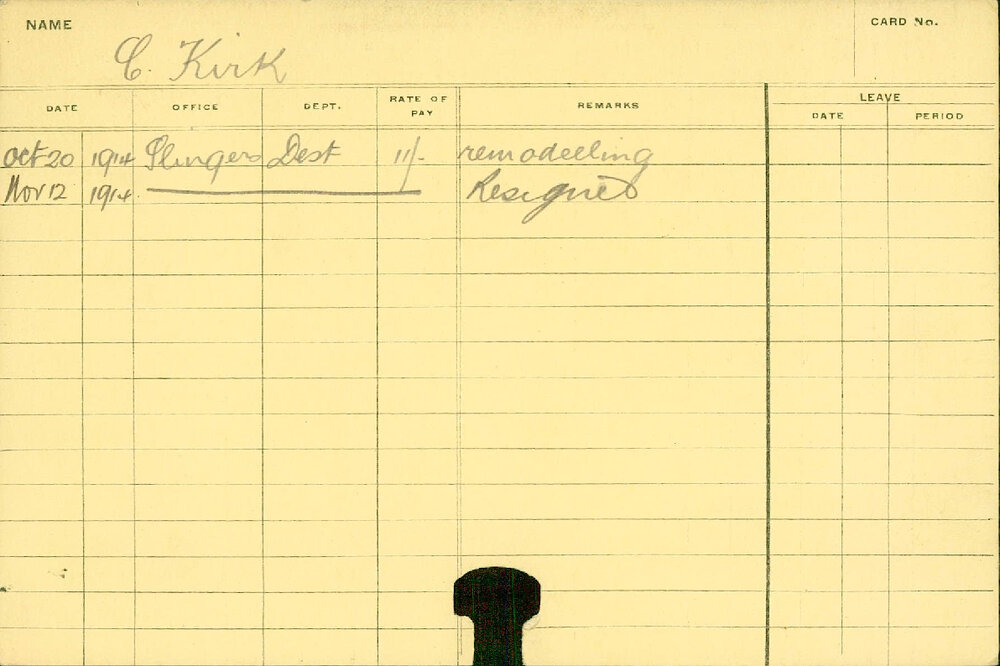 NAME
CARD No.
C. Kirk
DATE OFFICE DEPT. RATE OF PAY REMARKS LEAVE
DATE PERIOD
Oct 20 1914 Plungers Dest 11/- remodelling
Nov 12 1914 Resigned